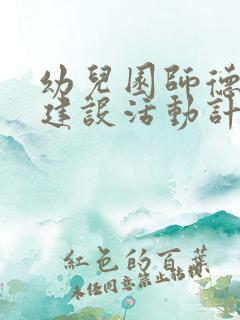 幼兒園師德
建設活動計
紅色的百葉
未經同意禁止轉載